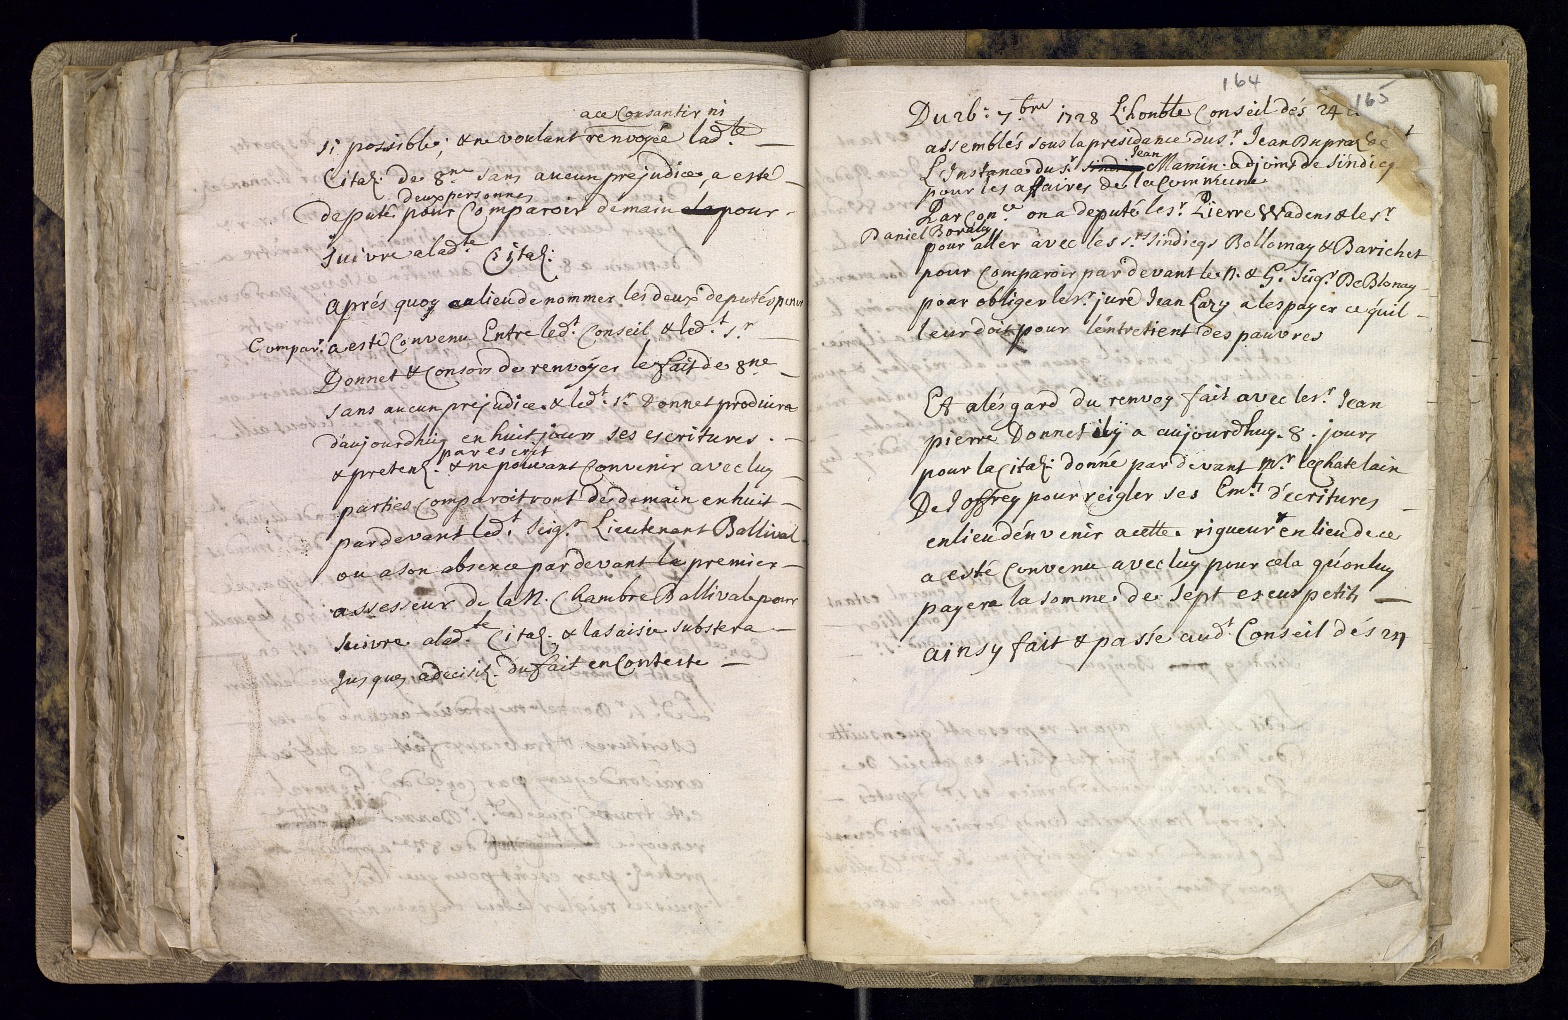 a ce Consantir ni
si possible; & ne voulant renvoyée lad.te
Cital: de 8.ne sans aucun prejudice, a esté
deux personnes
deputé pour Comparoir demain pour
suivre a lad.te Cital:
aprés quoy au lieu de nommer les deux deputés
Compar: a esté Convenu Entre led.t Conseil & led.t s.r
Donnet & Consors de renvoyer le fait de 8ne
sans aucun prejudice. & led.t s.r Donnet produira
d'aujourdhuy en huit jours ses escritures.
par escrit
& pretenl: & ne pouvant Convenir avec luy
parties Comparoitront de demain en huit
pardevant led.t Seig.r Lieutenant Ballival
ou a son absence par devant le premier
assesseur de la N. Chambre Ballivale pour
suivre a lad.te Cital: & la saisie substera
jusques a decisil: du fait en Conteste
164
165
Du 26: 7.bre 1728 L'honble Conseil dés 24
assemblés sous la présidance du s.r Jean Dupraz
Jean
L'Instance du s.r Mamin. adjoint de sindicq
pour les affaires de la Commune
Par Con.ce on a deputé le s.r Pierre Wadens & le s.r
Daniel
pour aller avec les s.rs sindicqs Bollomay & Barichet
pour Comparoir par devant le N. & G. Seig.r De Blonay
pour obliger le s.r juré Jean Cazy a les payer ce qu'il
leur doit pour l'entretient des pauvres
Et alésgard du renvoy fait avec le s.r Jean
pierre Donnet il ÿ a aujourdhuy. 8. jours
pour la Cital: donné par devant Mr. le chatelain
De Joffrey pour reigler ses Em.ts d'écritures
en lieu d'en venir a cette rigueur & en lieu de ce
a esté Convenu avec luy pour cela qu'on luy
payera la somme de sept escus petits
ainsy fait & passé aud.t Conseil dés 24